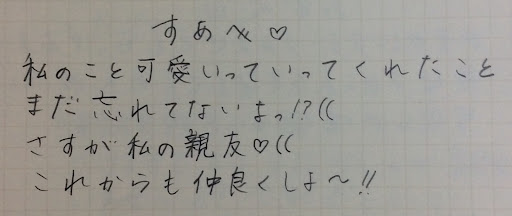 すあへ♡
私のこと可愛いっていってくれたこと
まだ忘れてないよっ!?((
さすが私の親友♡((
これからも仲良くしよ〜!!